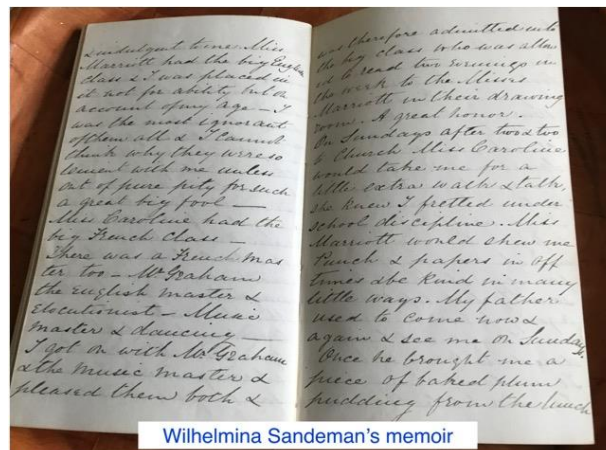 & indulgent to me. Miss
Marriott had the big English
class & I was placed in
it not for ability but on
account of my age – I
was the most ignorant
of them all & I cannot
think why they were so
lenient with me unless
out of pure pity for such
a great big fool —
Miss Caroline had the
big French class —
There was a French mas
ter too – Mr Graham
the English master &
Elocutionist – Music
master & dancing —
I got on with Mr Graham
& the music master &
pleased them both &
was therefore admitted into
the big class who was allow
ed to read two evenings in
the week to the Misses
Marriott in their drawing
room. A great honor.
On Sundays after two & two
to Church Miss Caroline
would take me for a
little extra walk & talk,
she knew I fretted under
school discipline. Miss
Marriott would shew me
Punch & papers in off
times & be kind in many
little ways. My father
used to come now &
again & see me on Sundays.
Once he brought me a
piece of baked plum
pudding from the lunch
Wilhelmina Sandeman's memoir